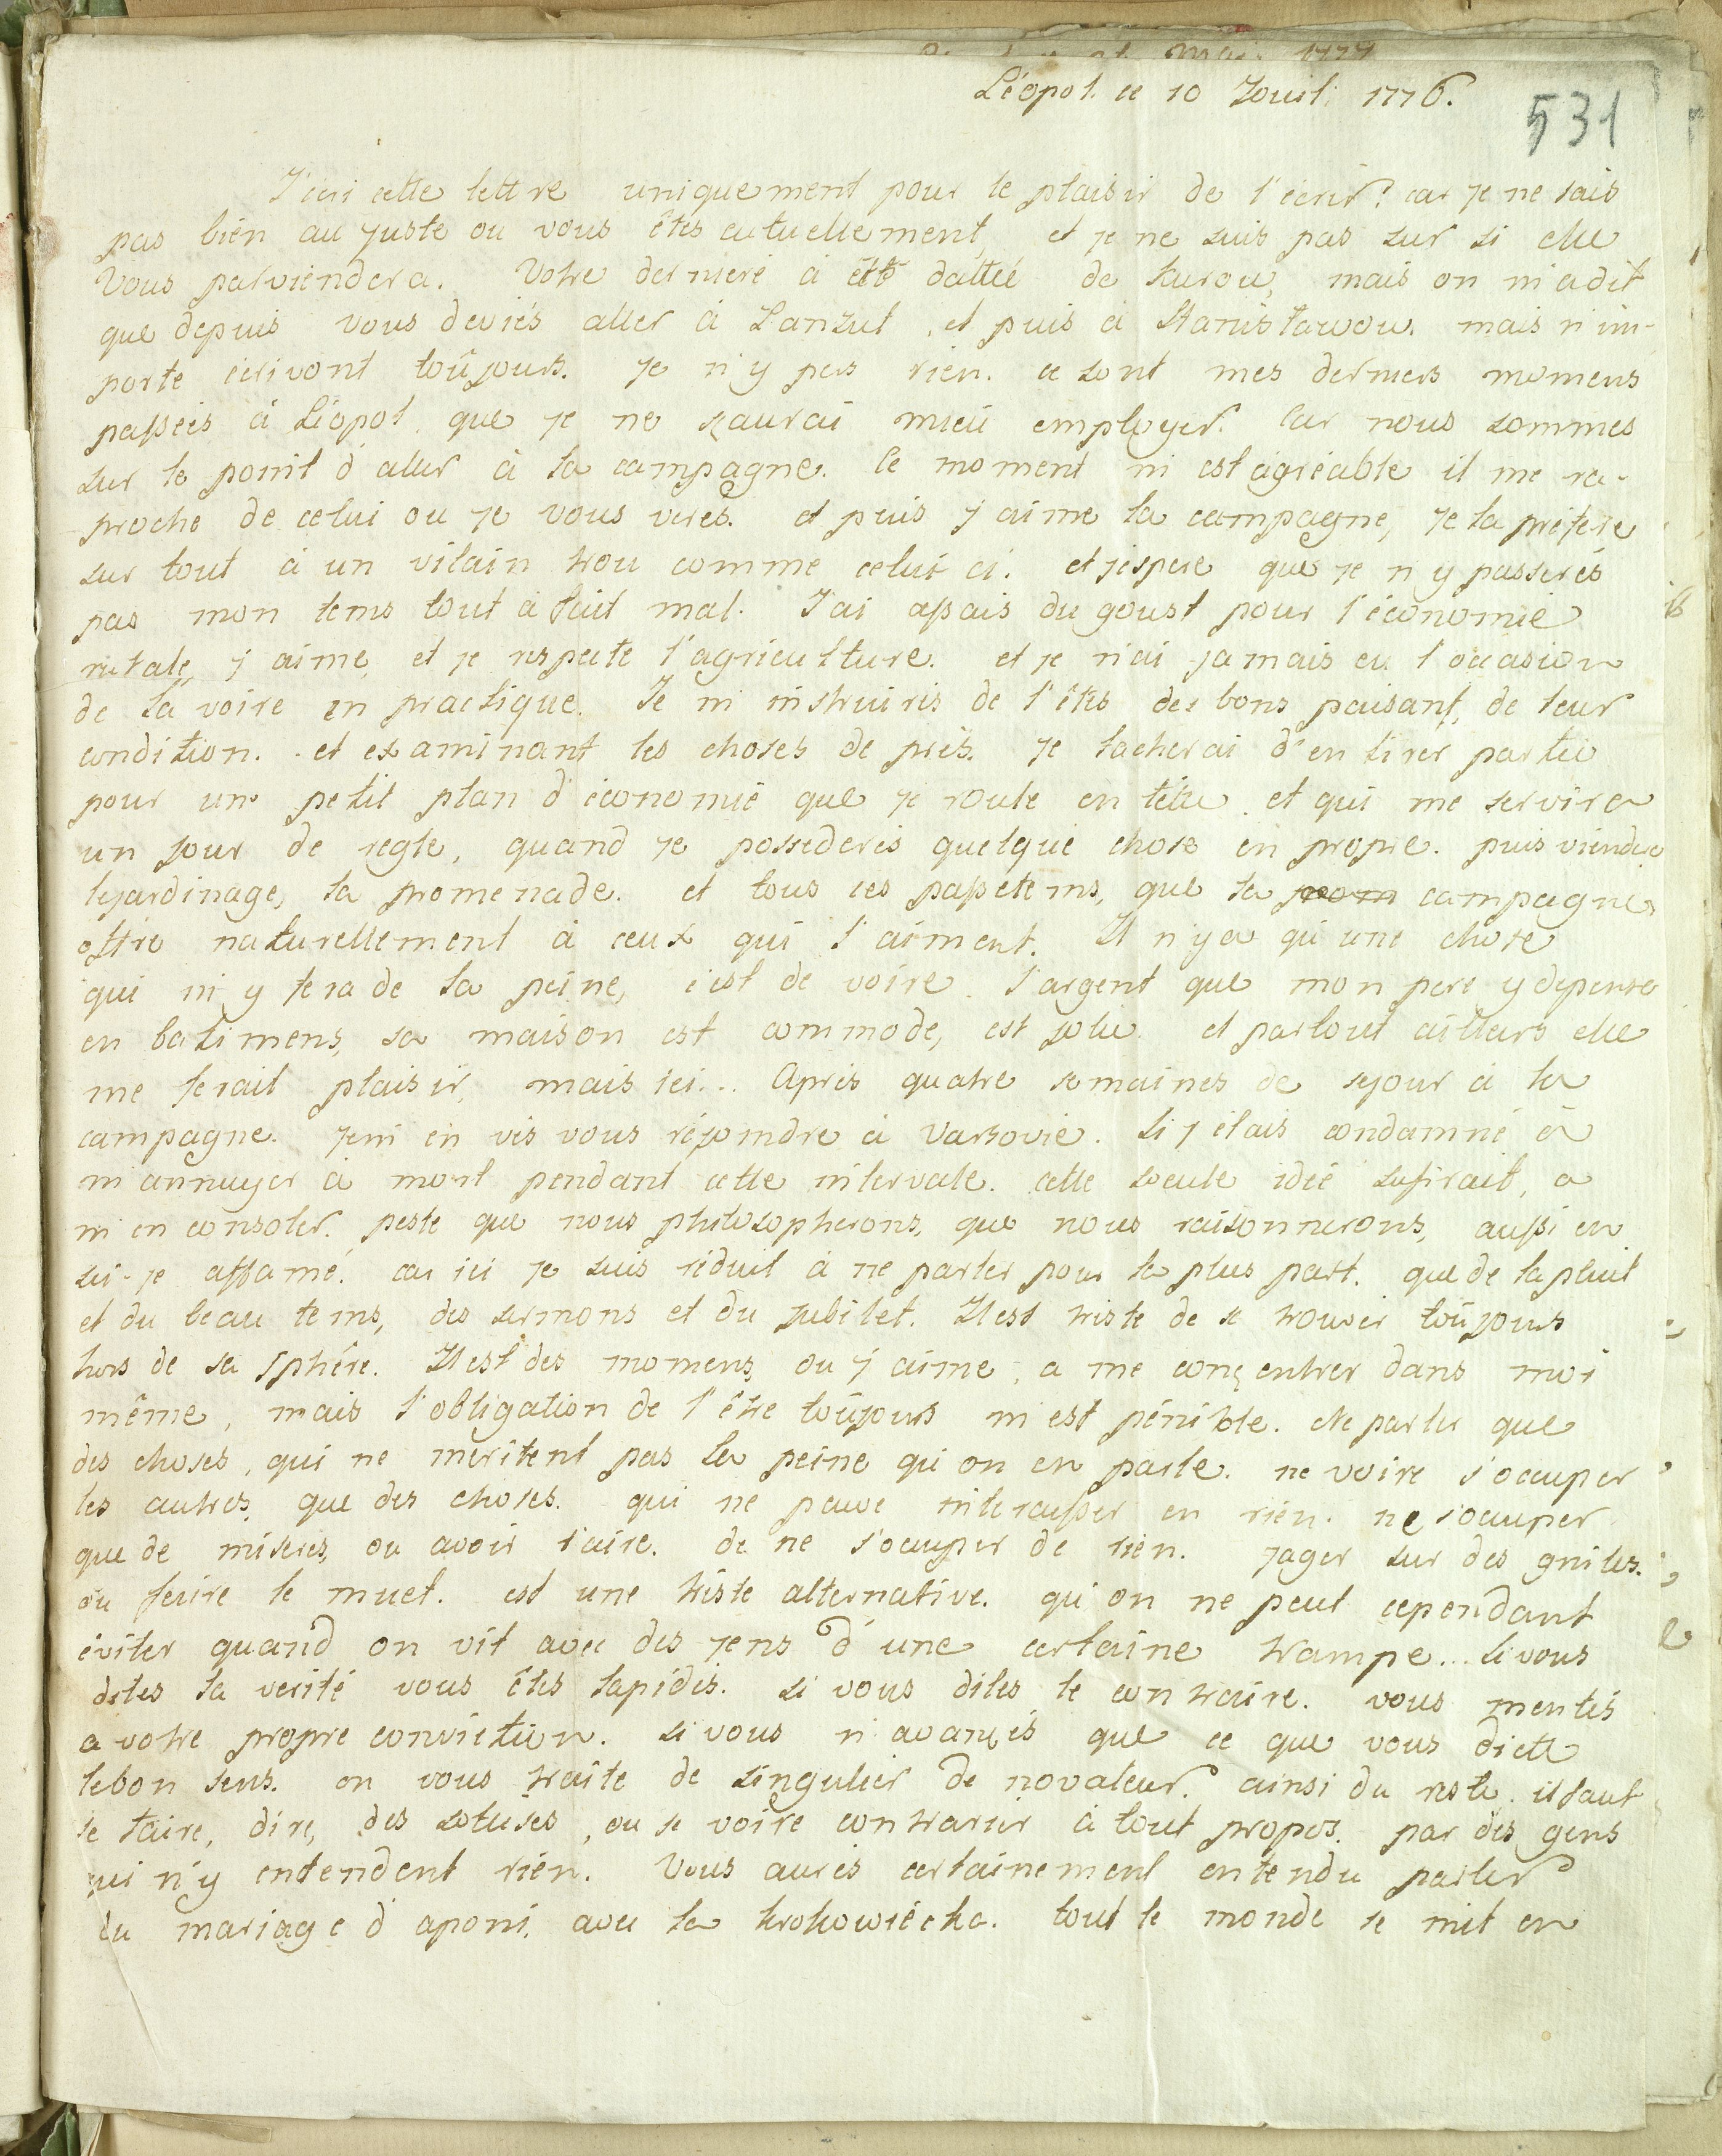 Léopol. ce 10 Jouil: 1776.
531
J'écri cette lettre uniquement pour le plaisir de l'écrir? car je ne sais
pas bien au juste ou vous êtes actuellement, et je ne suis pas sur si elle
Vous parviendera. Votre derniere à été dattée de Kurow, mais on m'a dit
que depuis vous deviés aller à Lanzut, et puis à Stanislawow. mais n'im-
porte écrivont toûjours. Je n'y pers rien. ce sont mes derniers momens
passées à Léopol, que je ne sçaurai mieü employer. Car nous sommes
sur le point d'aler à la campagne. Ce moment m'est agréable il me ra-
proche de celui ou je vous verés. et puis j'aime la campagne, Je la préfere
sur tout à un vilain trou comme celui ci. et j'espere que je n'y passerés
pas mon tems tout à fait mal. J'ai assais du goust pour l'économie
rurale, j'aime, et je respecte l'agriculture. et je n'ai jamais eu l'occasion
de la voire en practique. Je m'instruirés de l'êtes des bons paisant, de leur
condition. et examinant les choses de près. Je tacherai d'en tirer partie
pour une petit plan d'économie que je roule en tête. et qui me servira
un jour de regle, quand je possederés quelque chose en propre. puis viendra
le jardinage, la promenade. et tous ces passetems, que la campagne
offre naturellement à ceux qui l'aiment. Il n'y a qu'une chose
qui m'y fera de la peine, c'est de voire l'argent que mon pere y depense
en batimens, sa maison est commode, est jolie et partout ailleurs elle
me ferait plaisir, mais ici... Après quatre semaines de sejour à la
campagne. Je m'en vis vous réjoindre à Varsovie. Si j'étais condamné à
m'annuyer à mort pendant cette intervale. cette seeule idée sufirait, a
m'en consoler. peste que nous philosopherons, que nous raisonnerons, aussi en
sui-je affamé. car ici je suis réduit à ne parler pour la plus part. que de la pluit
et du beau tems, des sermons et du jubilet. Il est triste de se trouver toûjours
hors de sa sphére. Il est des momens, ou j'aime, a me conçentrer dans moi
même, mais l'obligation de l'être toûjours m'est pénible. Ne parler que
des choses, qui ne meritent pas la peine qu'on en parle. ne voire s'occuper
les autres, que des choses. qui ne peuve interausser en rien. ne s'occuper
que de miseres, ou avoir l'aire. de ne s'occuper de rien. Jager sur des
ou feire le muet. est une triste alternative. qu'on ne peut cependant
éviter quand on vit avec des jens d'une certaine trampe... Si vous
dites la verité vous êtes lapidés. si vous dites le contraire. vous mentés
a votre propre conviction. si vous n'avançés que ce que vous dicte
le bon sens. on vous traite de singulier de novateur. ainsi du reste. il faut
se taire, dire, des sotises, ou se voire contrarier à tout propos. par des gens
qui n'y entendent rien. Vous aurés certainement entendu parler
du mariage d'aponi. avec la Krokowiecka. tout le monde se mit en